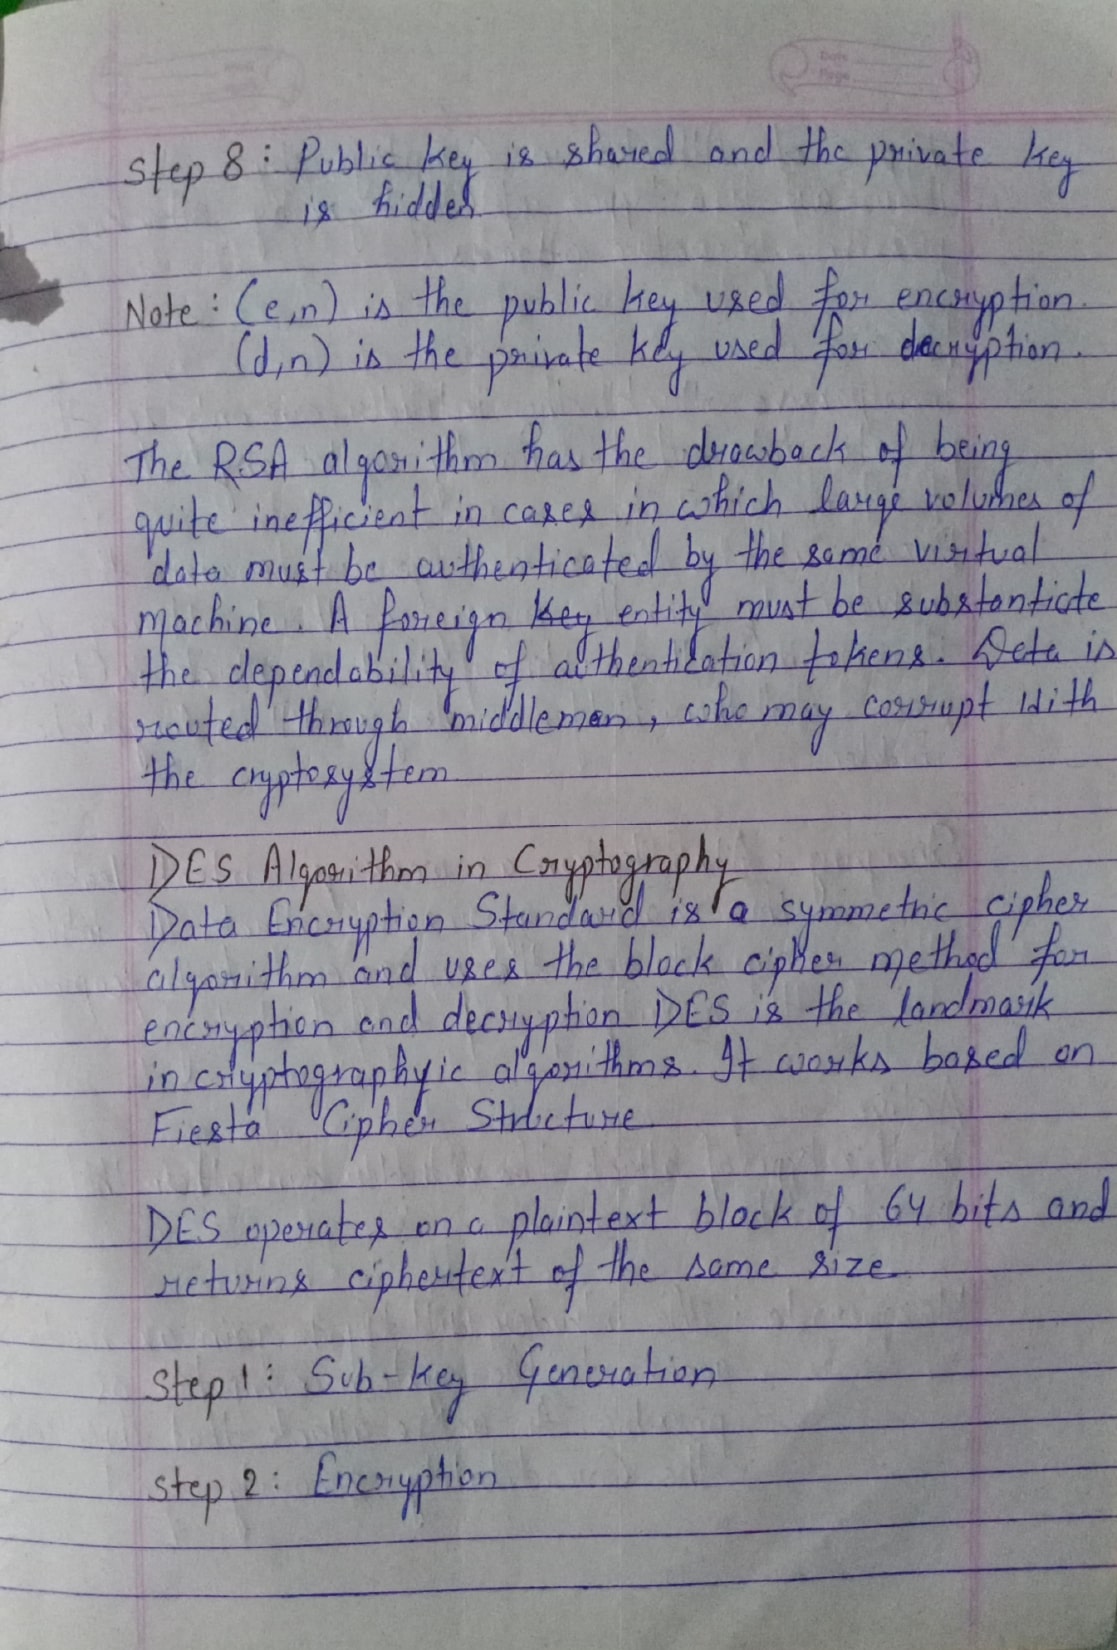 Date
Page
Step 8 : Public key is shared and the private key
is hidden
Note : (e,n) is the public key used for encryption.
(d,n) is the private key used for decryption.
The RSA algorithm has the drawback of being
quite inefficient in cases in which large volumes of
data must be authenticated by the same virtual
machine. A foreign key entity must be substantiate
the dependability of authentication tokens. Data is
routed through middlemen, who may corrupt with
the cryptosystem
DES Algorithm in Cryptography
Data Encryption Standard is a symmetric cipher
algorithm and uses the block cipher method for
encryption and decryption DES is the landmark
in cryptographyic algorithms. It works based on
Fiesta Cipher Structure
DES operates on a plaintext block of 64 bits and
returns ciphertext of the same size.
Step 1 : Sub-key Generation
Step 2 : Encryption